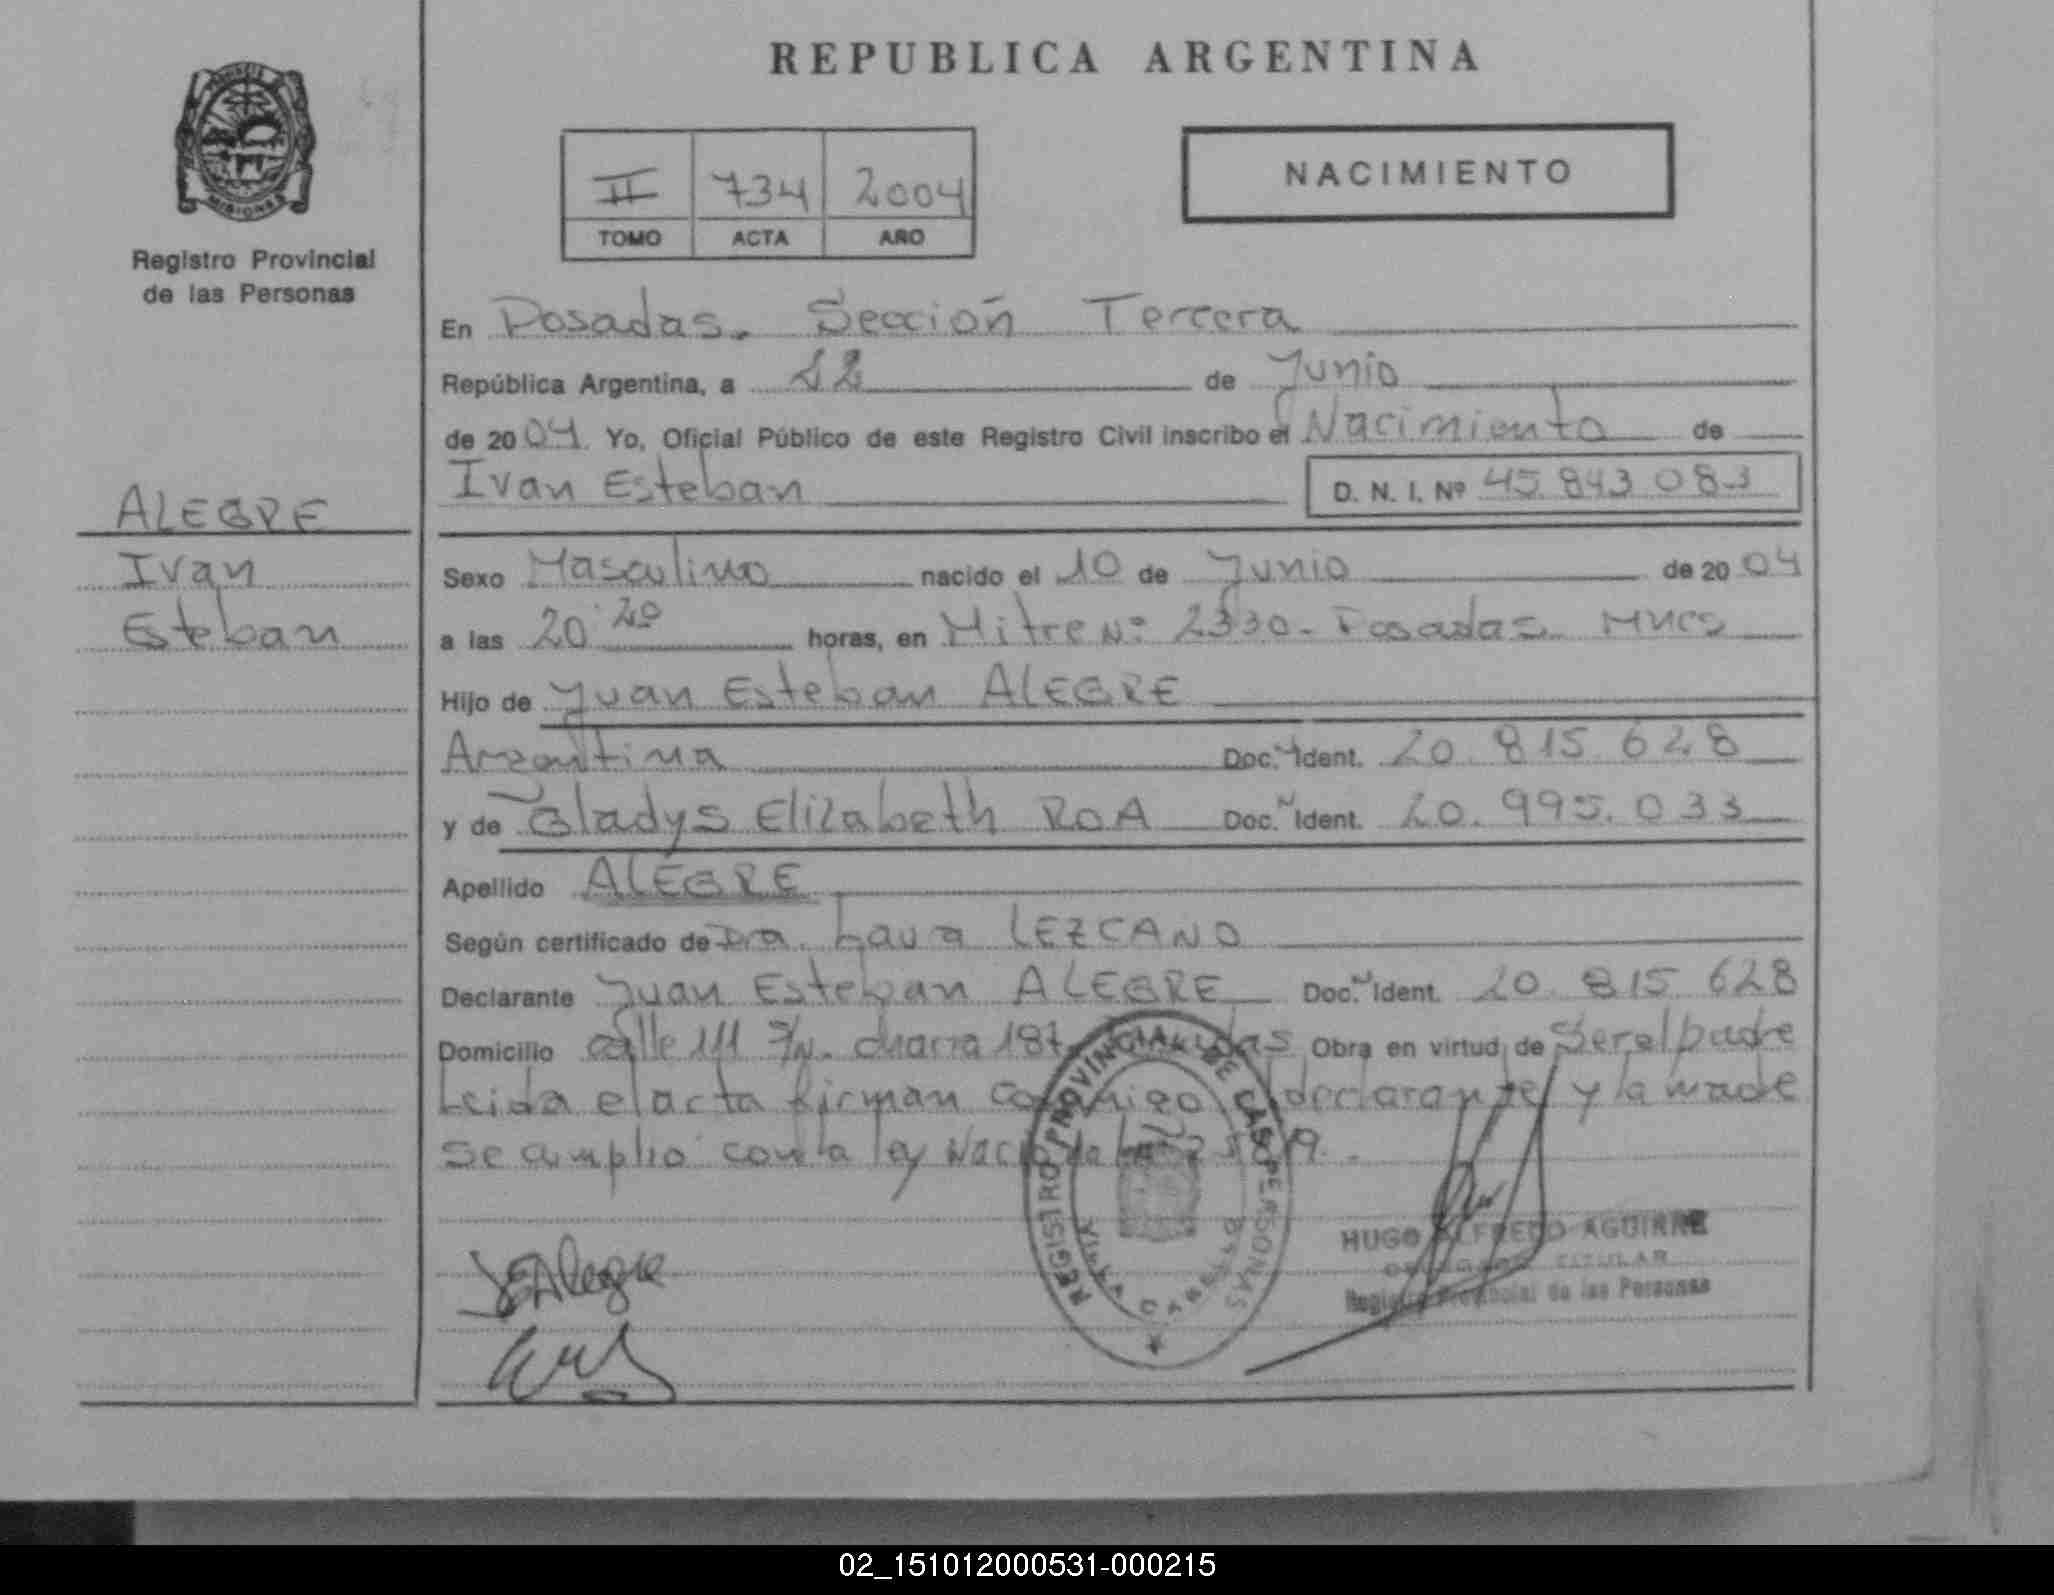 REPUBLICA ARGENTINA
PROVINCIA
MISIONES
Registro Provincial
de las Personas
NACIMIENTO
II 734 2004
TOMO ACTA AÑO
En Posadas. Sección Tercera
República Argentina, a 12 de Junio
de 2004. Yo, Oficial Público de este Registro Civil inscribo el Nacimiento de
Ivan Esteban D. N. I. Nº 45.843.083
ALEGRE
Ivan
Esteban
Sexo Masculino nacido el 10 de Junio de 2004
a las 20:20 horas, en Mitre Nº 2330 - Posadas Mnes
Hijo de Juan Esteban ALEGRE
Argentina Doc. Ident. 20.815.628
y de Gladys Elizabeth ROA Doc. Ident. 20.995.033
Apellido ALEGRE
Según certificado de Dra. Laura LEZCANO
Declarante Juan Esteban ALEGRE Doc. Ident. 20.815.628
Domicilio calle 111 S/N. chacra 187 Obra en virtud de Ser el padre
Leida el acta firman conmigo declarante y la madre
se cumplió con la ley
JEAlegre
REGISTRO PROVINCIAL DE LAS PERSONAS
VILLA CABELLO
HUGO ALFREDO AGUIRRE
DELEGADO TITULAR
Registro Provincial de las Personas
02_151012000531-000215